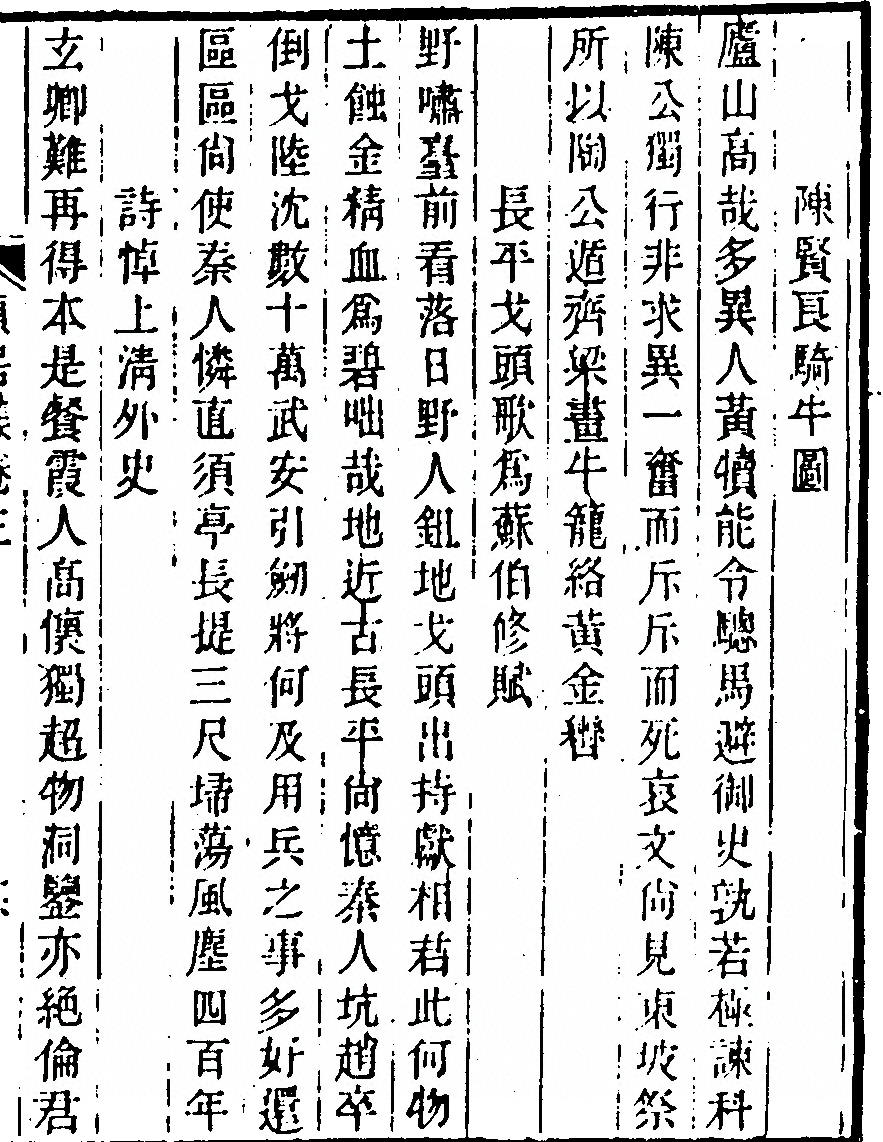 陳賢良騎牛圖
廬山高哉多異人黃犢能令驄馬避御史孰若極諫科
陳公獨行非求異一奮而斥斥而死哀文尙見東坡祭
所以陶公遁齊梁畫牛籠絡黃金轡
長平戈頭歌爲蘇伯修賦
野嘯臺前看落日野人鉏地戈頭出持獻相君此何物
土蝕金精血爲碧咄哉地近古長平尙憶秦人坑趙卒
倒戈陸沈數十萬武安引劒將何及用兵之事多好還
區區尙使秦人憐直須亭長提三尺埽蕩風塵四百年
詩悼上淸外史
玄卿難再得本是餐霞人高懷獨超物洞鑒亦絶倫君